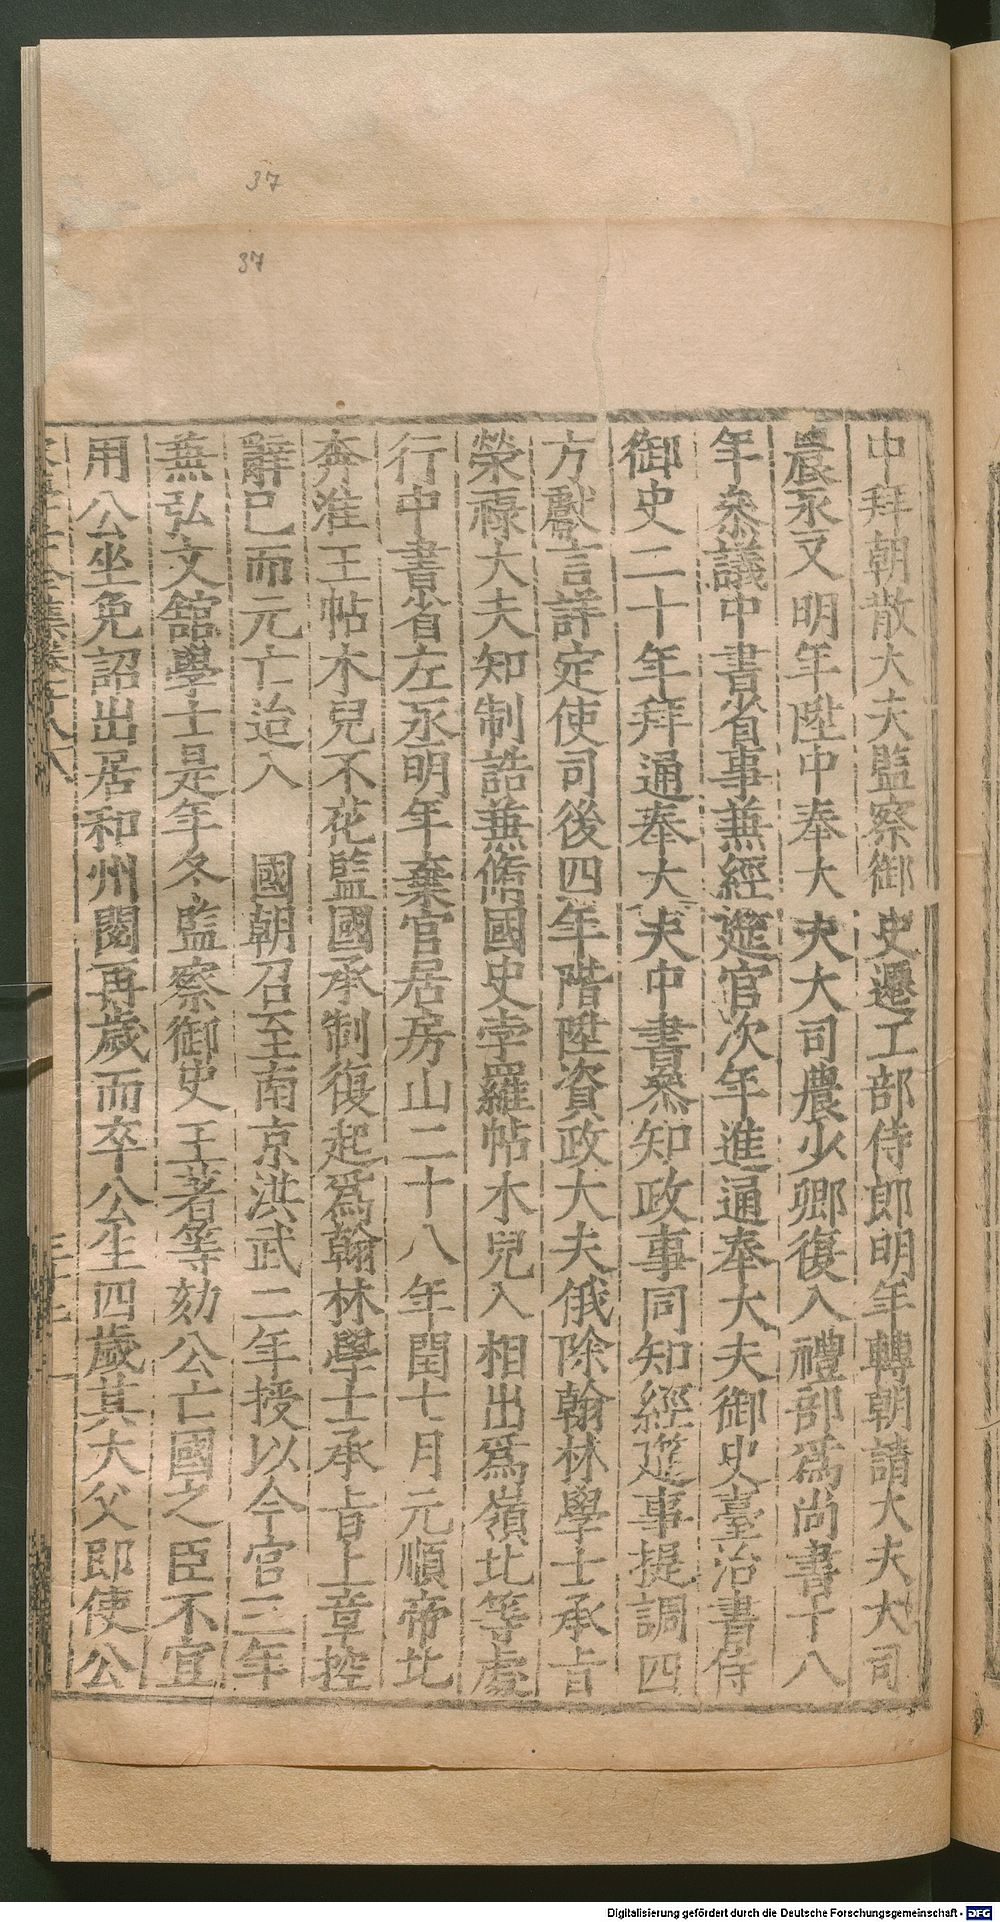 37
37
中拜朝散大夫監察御史遷工部侍郎明年轉朝請大夫大司
農丞又明年陞中奉大夫大司農少卿復入禮部爲尚書十八
年叅議中書省事蕪經筵官次年進通奉大夫御史臺治書侍
御史二十年拜通奉大夫中書叅知政事同知經筵事提調四
方獻言詳定使司後四年階陞資政大夫俄除翰林學士承旨
榮祿大夫知制誥蕪脩國史孛羅帖木兒入相出爲嶺北等處
行中書省左丞明年棄官居房山二十八年閏七月元順帝北
奔淮王帖木兒不花監國承制復起爲翰林學士承旨上章控
辭已而元亡迨入 國朝召至南京洪武二年授以今官三年
蕪弘文館學士是年冬監察御史王著等劾公亡國之臣不宜
用公坐免詔出居和州閱再歲而卒公生四歲其大父即使公
Digitalisierung gefördert durch die Deutsche Forschungsgemeinschaft - DFG